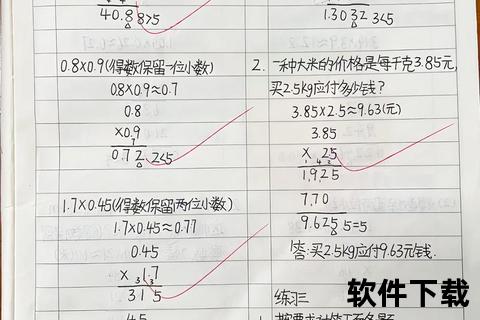 40.8 8>5
0.8×0.9(得数保留一位小数)
0.8×0.9≈0.7
0.8
×0.9
0.72 2<5
1.7×0.45(得数保留两位小数)
1.7×0.45≈0.77
0.45
×1.7
315
45
1.3032 3<5
2.一种大米的价格是每千克3.85元,
买2.5kg应付多少钱?
3.85×2.5≈9.63(元)
3.85
×2.5
1925
770
9.625 5=5
答:买2.5kg应付9.63元钱.
练习三
软件下载